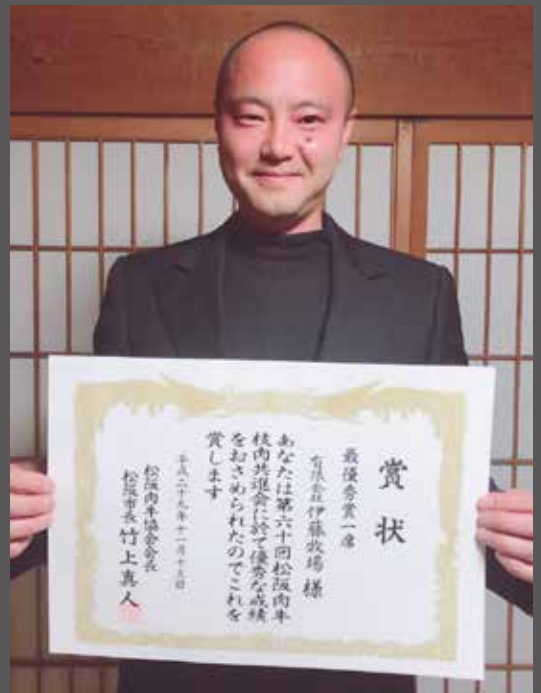 賞状
最優秀賞一席
有限会社 伊藤牧場 様
あなたは第六十回松阪肉牛
枝肉共進会に於て優秀な成績
をおさめられたのでこれを
賞します
平成二十九年十一月十三日
松阪肉牛協会会長
松阪市長 竹上真人